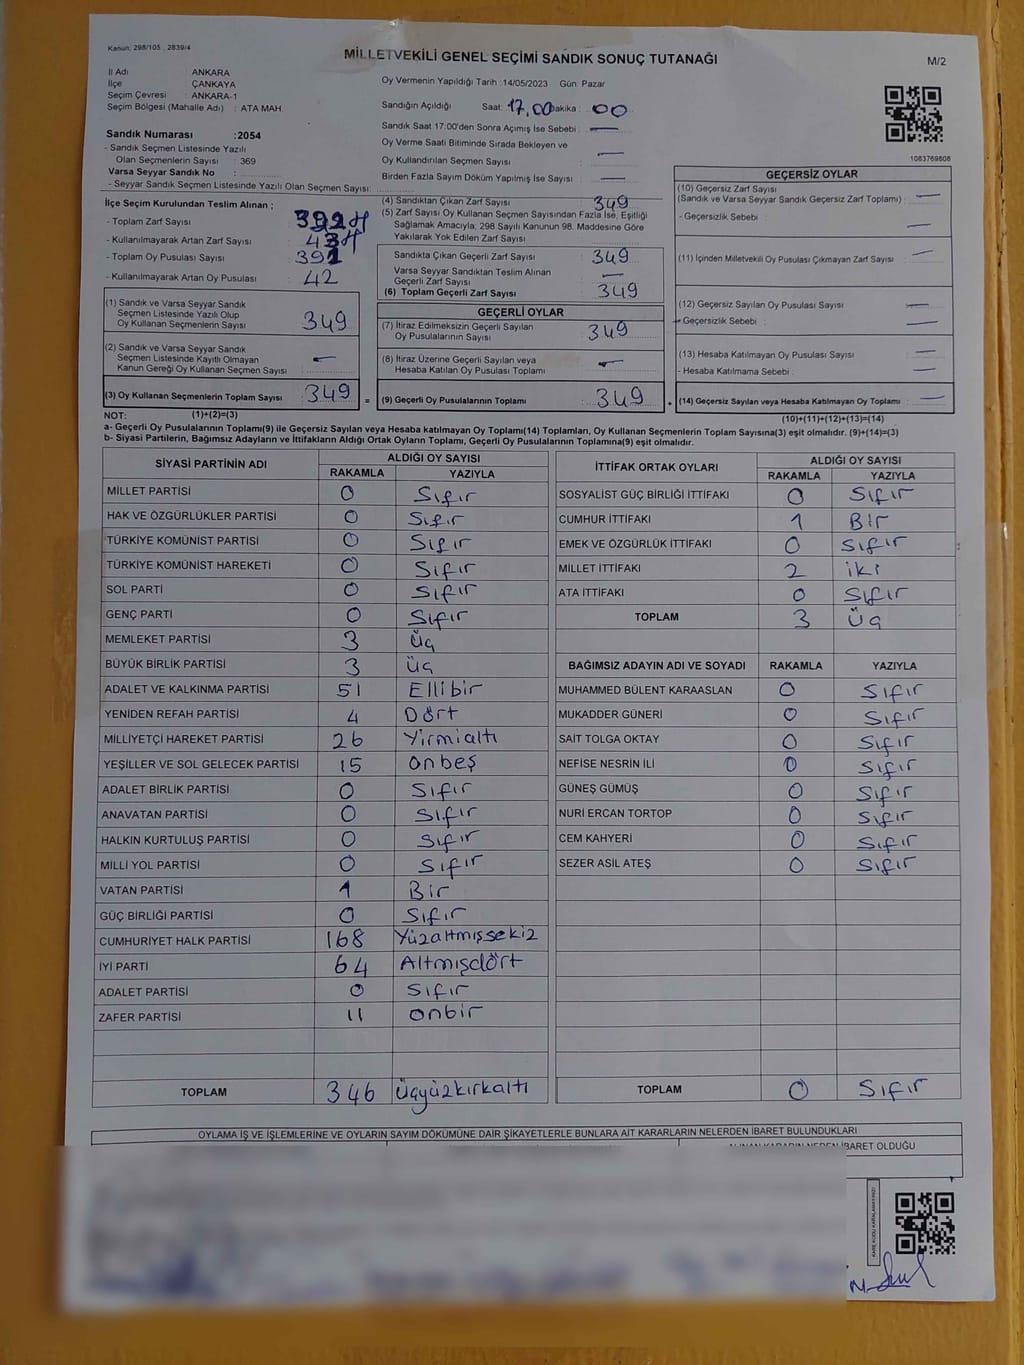 Kanun: 298/105 , 2839/4
MİLLETVEKİLİ GENEL SEÇİMİ SANDIK SONUÇ TUTANAĞI
M/2
İl Adı : ANKARA
İlçe : ÇANKAYA
Seçim Çevresi : ANKARA-1
Seçim Bölgesi (Mahalle Adı) : ATA MAH.
Sandık Numarası :2054
- Sandık Seçmen Listesinde Yazılı
Olan Seçmenlerin Sayısı : 369
Varsa Seyyar Sandık No :
- Seyyar Sandık Seçmen Listesinde Yazılı Olan Seçmen Sayısı:
Oy Vermenin Yapıldığı Tarih :14/05/2023 Gün: Pazar
Sandığın Açıldığı Saat: 17.00 Dakika : 00
Sandık Saat 17:00'den Sonra Açımış İse Sebebi : —
Oy Verme Saati Bitiminde Sırada Bekleyen ve
Oy Kullandırılan Seçmen Sayısı : —
Birden Fazla Sayım Döküm Yapılmış İse Sayısı : —
1083769808
İlçe Seçim Kurulundan Teslim Alınan ;
- Toplam Zarf Sayısı : 392
- Kullanılmayarak Artan Zarf Sayısı : 43
- Toplam Oy Pusulası Sayısı : 391
- Kullanılmayarak Artan Oy Pusulası : 42
(1) Sandık ve Varsa Seyyar Sandık
Seçmen Listesinde Yazılı Olup
Oy Kullanan Seçmenlerin Sayısı : 349
(2) Sandık ve Varsa Seyyar Sandık
Seçmen Listesinde Kayıtlı Olmayan
Kanun Gereği Oy Kullanan Seçmen Sayısı : —
(3) Oy Kullanan Seçmenlerin Toplam Sayısı : 349 =
(4) Sandıktan Çıkan Zarf Sayısı : 349
(5) Zarf Sayısı Oy Kullanan Seçmen Sayısından Fazla İse, Eşitliği
Sağlamak Amacıyla, 298 Sayılı Kanunun 98. Maddesine Göre
Yakılarak Yok Edilen Zarf Sayısı :
Sandıkta Çıkan Geçerli Zarf Sayısı : 349
Varsa Seyyar Sandıktan Teslim Alınan
Geçerli Zarf Sayısı : —
(6) Toplam Geçerli Zarf Sayısı : 349
GEÇERLİ OYLAR
(7) İtiraz Edilmeksizin Geçerli Sayılan
Oy Pusulalarının Sayısı : 349
(8) İtiraz Üzerine Geçerli Sayılan veya
Hesaba Katılan Oy Pusulası Toplamı : —
(9) Geçerli Oy Pusulalarının Toplamı : 349
GEÇERSİZ OYLAR
(10) Geçersiz Zarf Sayısı
(Sandık ve Varsa Seyyar Sandık Geçersiz Zarf Toplamı) : —
- Geçersizlik Sebebi : —
(11) İçinden Milletvekili Oy Pusulası Çıkmayan Zarf Sayısı : —
(12) Geçersiz Sayılan Oy Pusulası Sayısı : —
- Geçersizlik Sebebi : —
(13) Hesaba Katılmayan Oy Pusulası Sayısı : —
- Hesaba Katılmama Sebebi : —
(14) Geçersiz Sayılan veya Hesaba Katılmayan Oy Toplamı : —
NOT: (1)+(2)=(3)
(10)+(11)+(12)+(13)=(14)
a- Geçerli Oy Pusulasının Toplamı(9) ile Geçersiz Sayılan veya Hesaba katılmayan Oy Toplamı(14) Toplamları, Oy Kullanan Seçmenlerin Toplam Sayısına(3) eşit olmalıdır. (9)+(14)=(3)
b- Siyasi Partilerin, Bağımsız Adayların ve İttifakların Aldığı Ortak Oyların Toplamı, Geçerli Oy Pusulalarının Toplamına(9) eşit olmalıdır.
SİYASİ PARTİNİN ADI ALDIĞI OY SAYISI
RAKAMLA YAZIYLA
MİLLET PARTİSİ 0 Sıfır
HAK VE ÖZGÜRLÜKLER PARTİSİ 0 Sıfır
TÜRKİYE KOMÜNİST PARTİSİ 0 Sıfır
TÜRKİYE KOMÜNİST HAREKETİ 0 Sıfır
SOL PARTİ 0 Sıfır
GENÇ PARTİ 0 Sıfır
MEMLEKET PARTİSİ 3 Üç
BÜYÜK BİRLİK PARTİSİ 3 Üç
ADALET VE KALKINMA PARTİSİ 51 Ellibir
YENİDEN REFAH PARTİSİ 4 Dört
MİLLİYETÇİ HAREKET PARTİSİ 26 Yirmialtı
YEŞİLLER VE SOL GELECEK PARTİSİ 15 onbeş
ADALET BİRLİK PARTİSİ 0 Sıfır
ANAVATAN PARTİSİ 0 Sıfır
HALKIN KURTULUŞ PARTİSİ 0 Sıfır
MİLLİ YOL PARTİSİ 0 Sıfır
VATAN PARTİSİ 1 Bir
GÜÇ BİRLİĞİ PARTİSİ 0 Sıfır
CUMHURİYET HALK PARTİSİ 168 Yüzaltmışsekiz
İYİ PARTİ 64 Altmışdört
ADALET PARTİSİ 0 Sıfır
ZAFER PARTİSİ 11 onbir
TOPLAM 346 üçyüzkırkaltı
İTTİFAK ORTAK OYLARI ALDIĞI OY SAYISI
RAKAMLA YAZIYLA
SOSYALİST GÜÇ BİRLİĞİ İTTİFAKI 0 Sıfır
CUMHUR İTTİFAKI 1 Bir
EMEK VE ÖZGÜRLÜK İTTİFAKI 0 Sıfır
MİLLET İTTİFAKI 2 iki
ATA İTTİFAKI 0 Sıfır
TOPLAM 3 Üç
BAĞIMSIZ ADAYIN ADI VE SOYADI RAKAMLA YAZIYLA
MUHAMMED BÜLENT KARAASLAN 0 Sıfır
MUKADDER GÜNERİ 0 Sıfır
SAİT TOLGA OKTAY 0 Sıfır
NEFİSE NESRİN İLİ 0 Sıfır
GÜNEŞ GÜMÜŞ 0 Sıfır
NURİ ERCAN TORTOP 0 Sıfır
CEM KAHYERİ 0 Sıfır
SEZER ASİL ATEŞ 0 Sıfır
TOPLAM 0 Sıfır
OYLAMA İŞ VE İŞLEMLERİNE VE OYLARIN SAYIM DÖKÜMÜNE DAİR ŞİKAYETLERLE BUNLARA AİT KARARLARIN NELERDEN İBARET BULUNDUKLARI
ALINAN KARARIN NEDEN İBARET OLDUĞU
KARE KODU KARALAMAYINIZ!